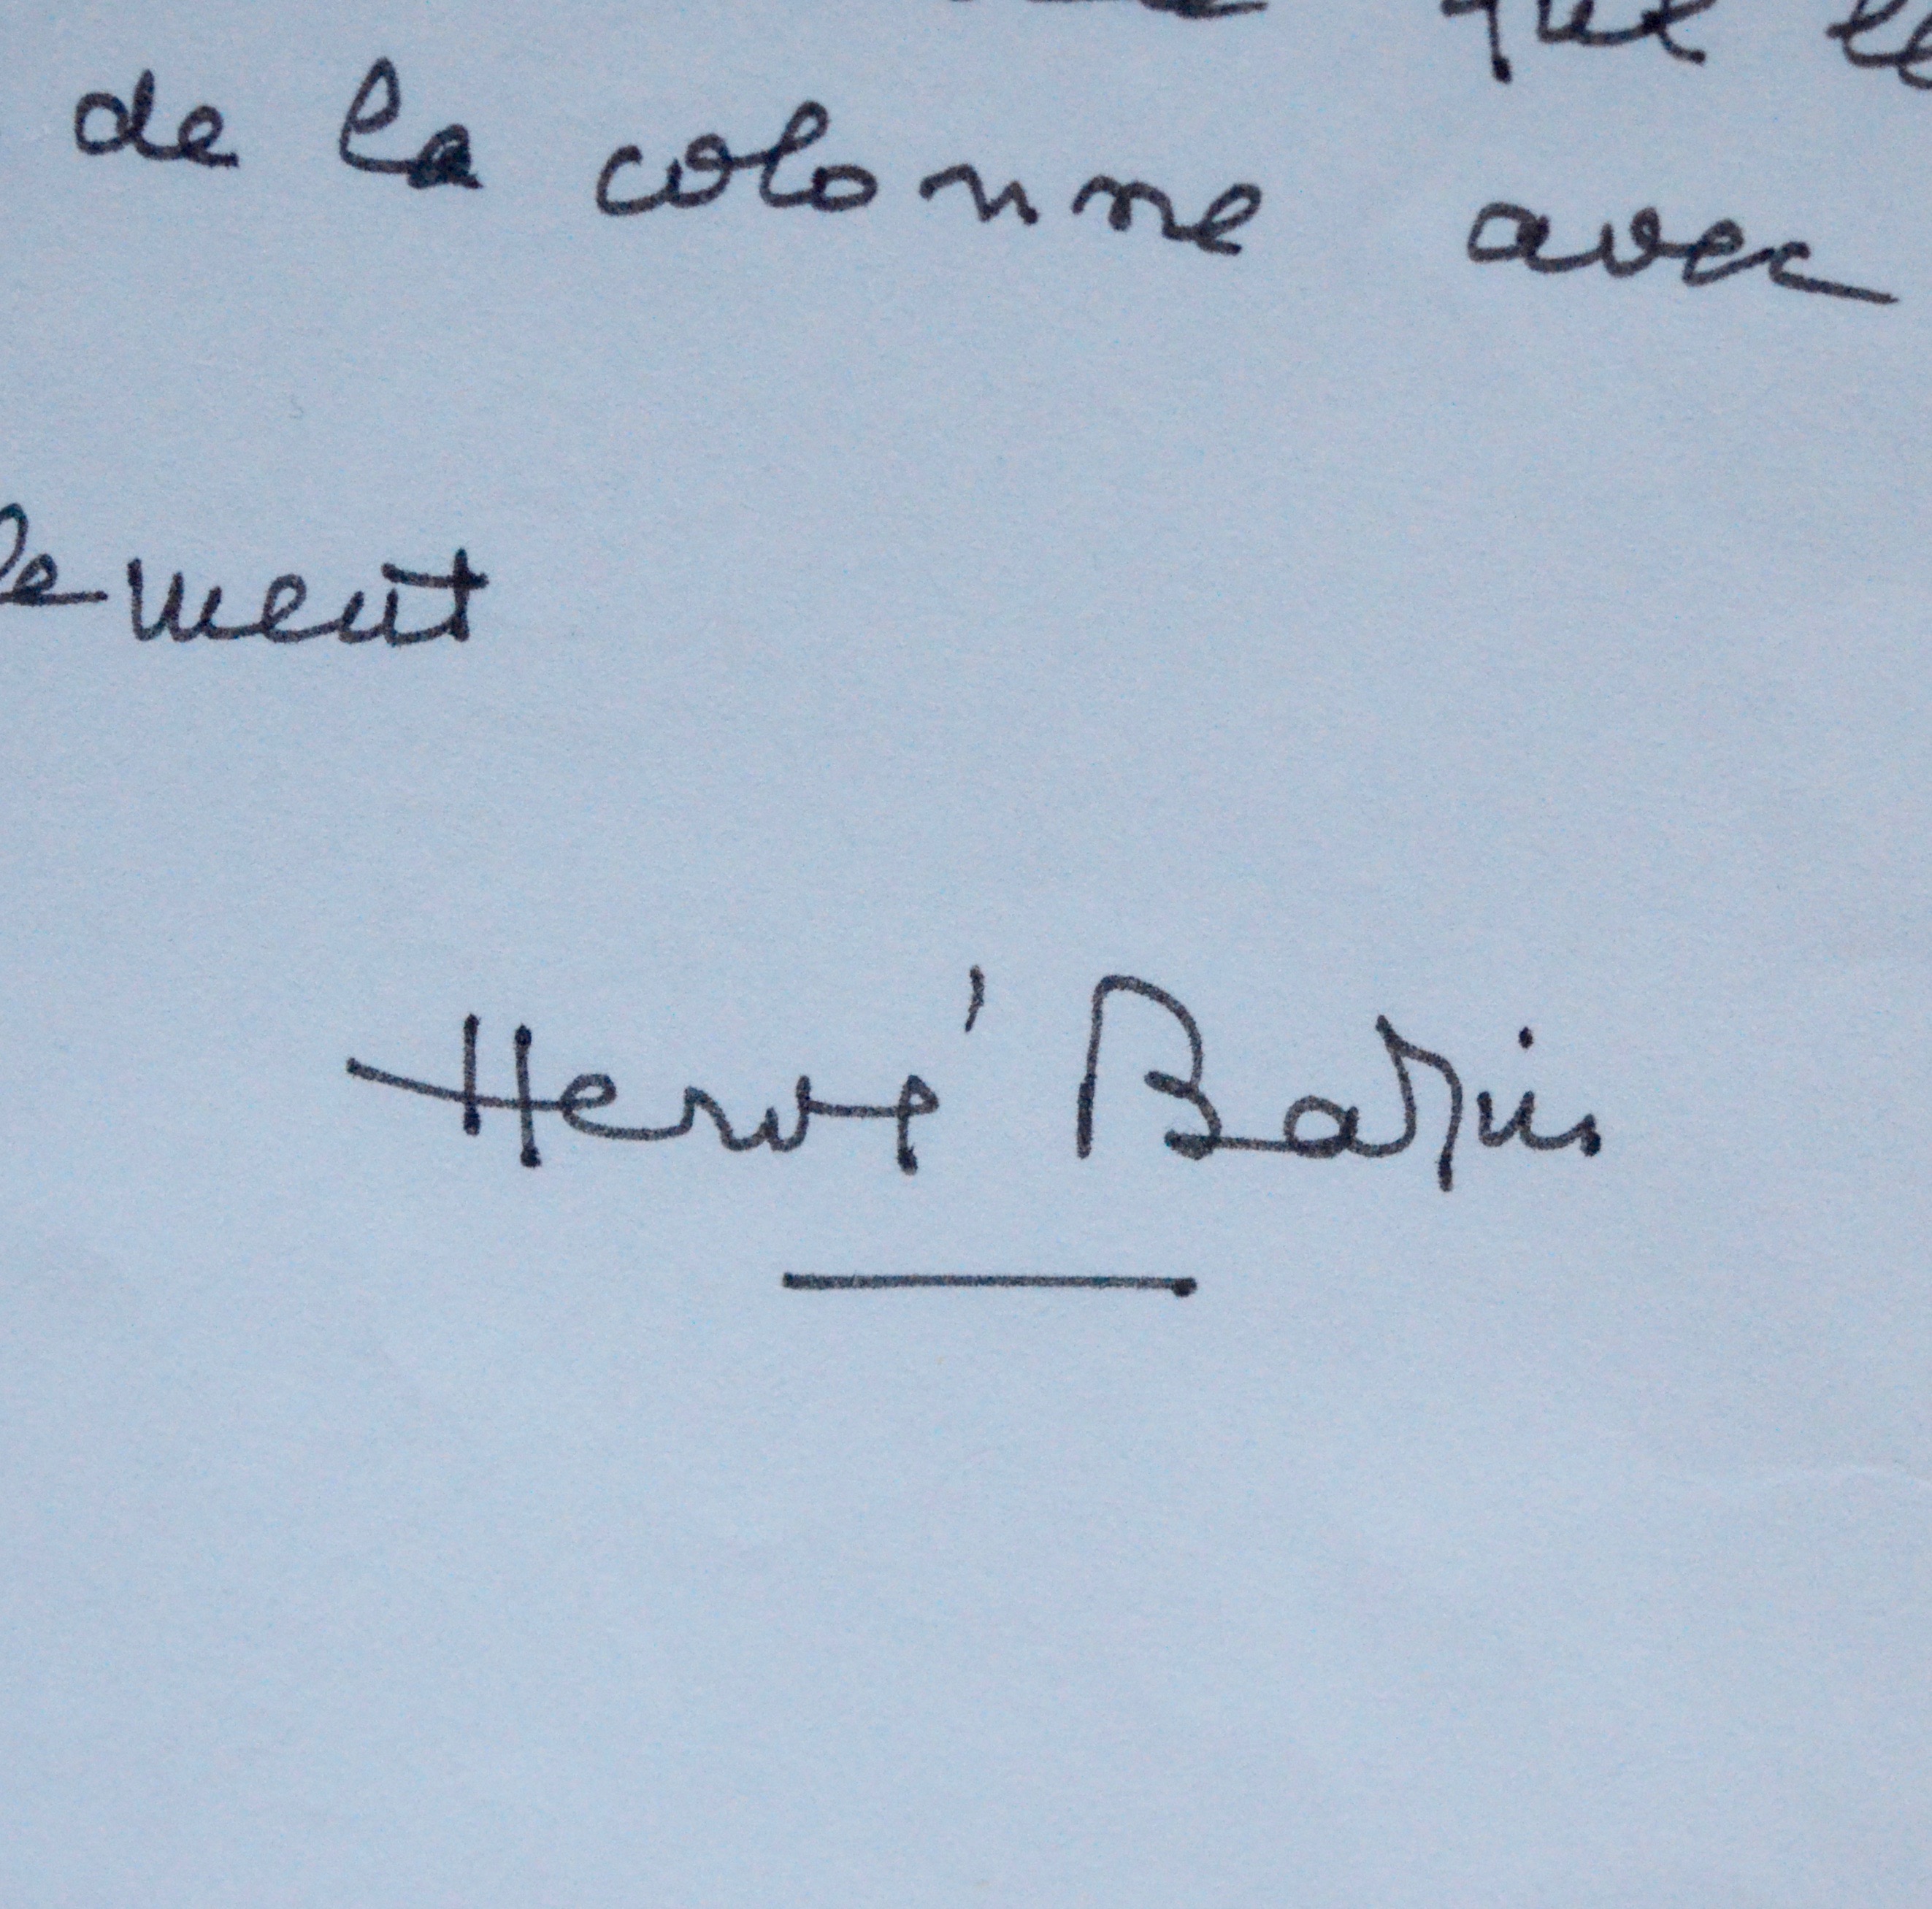 que le
de la colonne avec
lement
Hervé Bazin